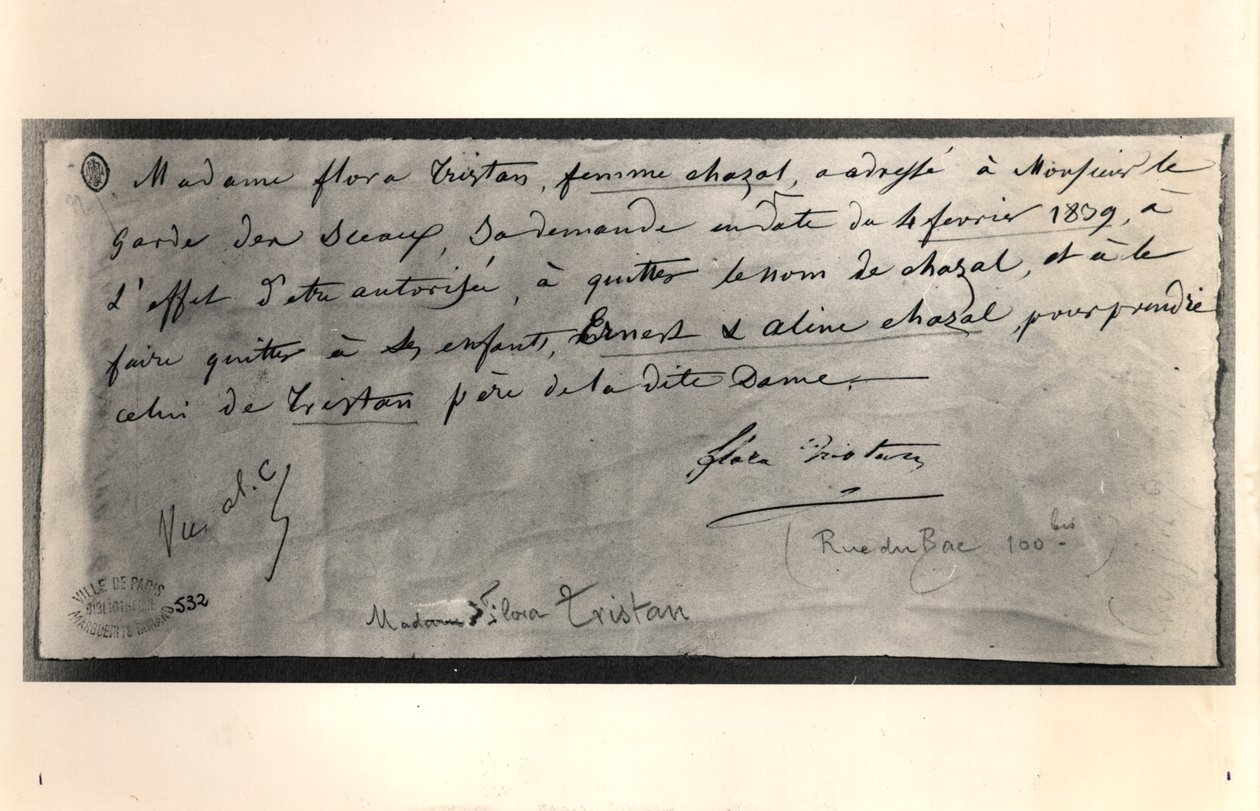 Madame flora Tristan, femme chazal, a adressé à Monsieur le
Garde des Sceaux, Sa demande en date du 4 fevrier 1839, à
L'effet d'etre autorisée, à quitter le nom de chazal, et à le
faire quitter à Ses enfants, Ernest & aline chazal, pour prendre
celui de Tristan père de la dite Dame.
flora Tristan
(Rue du Bac 100 bis)
VILLE DE PARIS
BIBLIOTHEQUE
MARGUERITE DURAND
532
Madame Flora Tristan